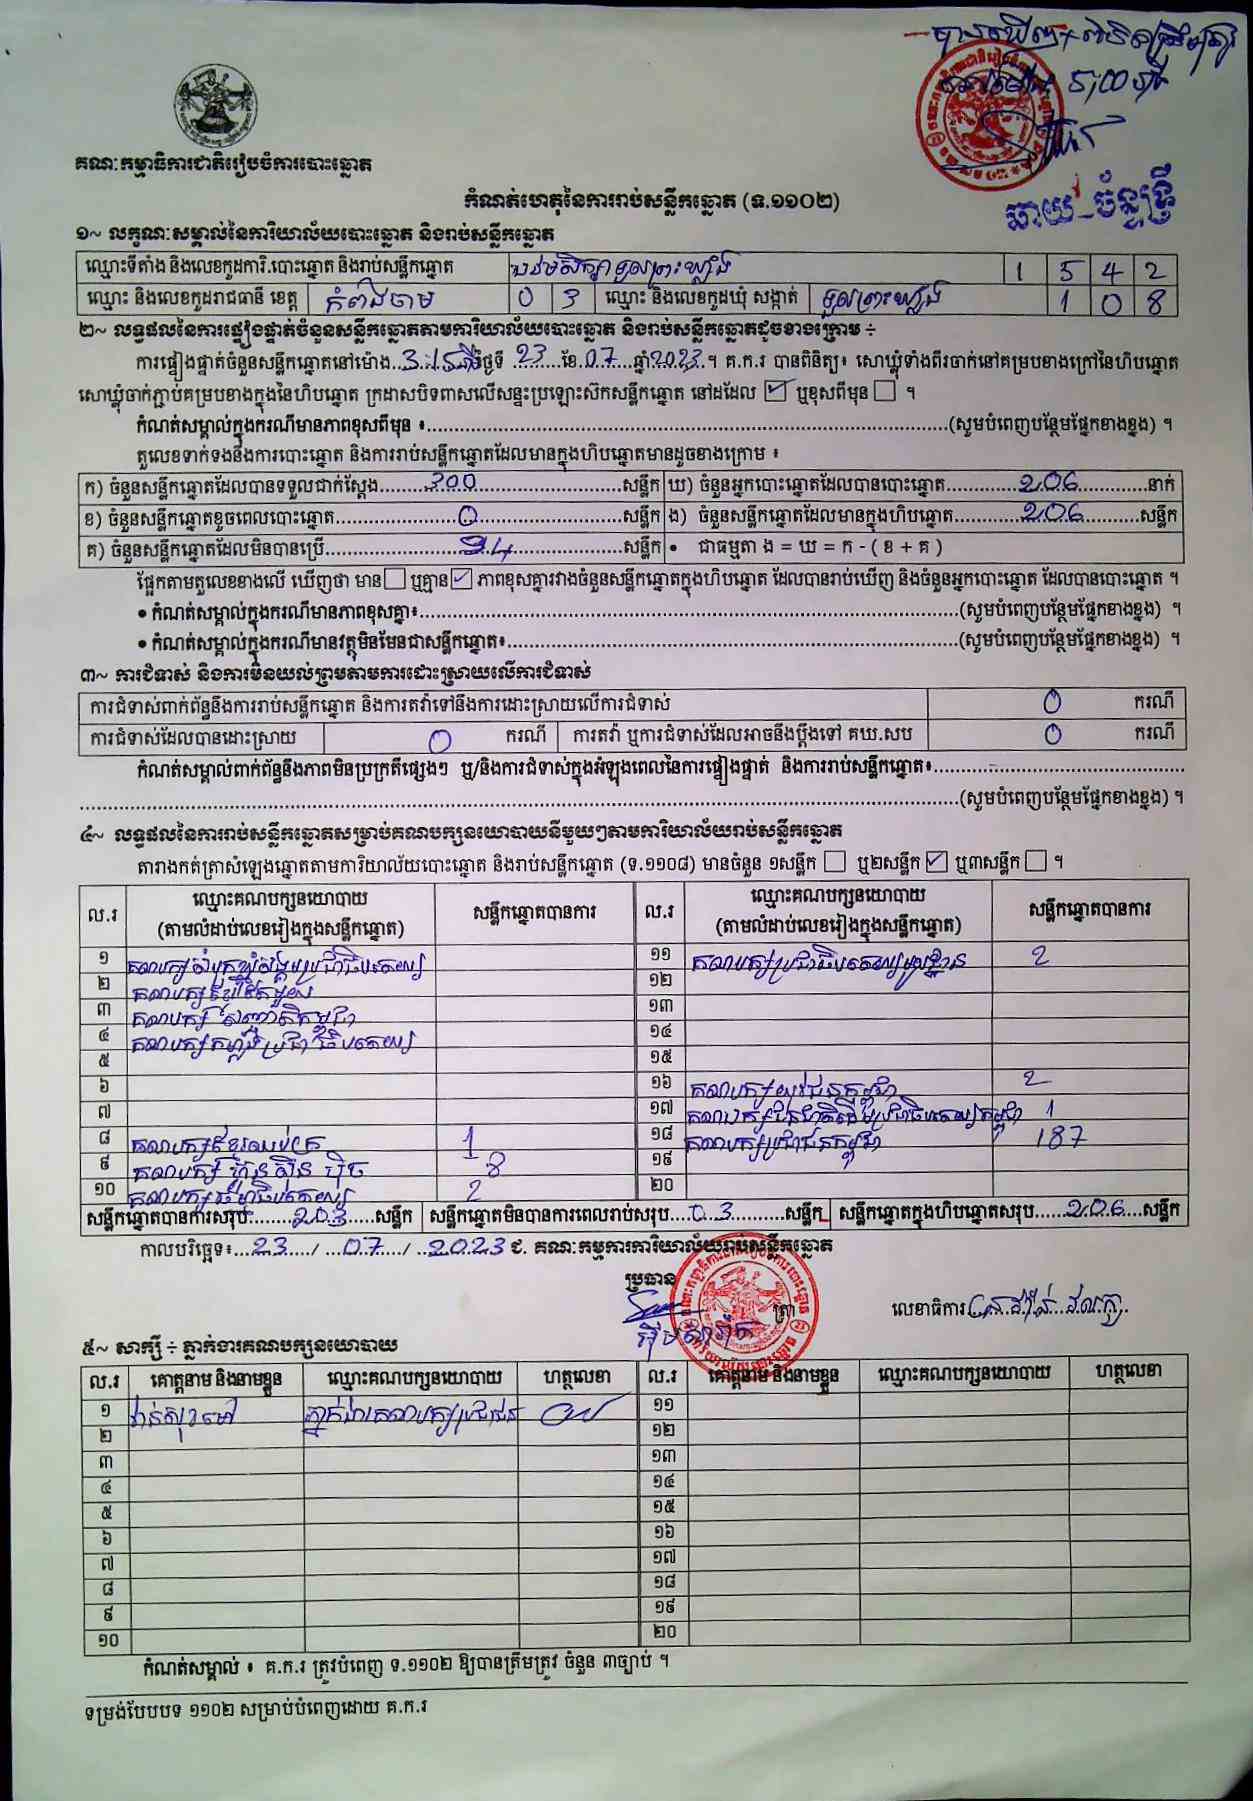 គណៈកម្មាធិការជាតិរៀបចំការបោះឆ្នោត
កំណត់ហេតុនៃការរាប់សន្លឹកឆ្នោត (ទ.១១០២)
១~ លក្ខណៈសម្គាល់នៃការិយាល័យបោះឆ្នោត និងរាប់សន្លឹកឆ្នោត
ឈ្មោះទីតាំង និងលេខកូដការិ.បោះឆ្នោត និងរាប់សន្លឹកឆ្នោត បឋមសិក្សាទួលព្រះឃ្លាំង 1 5 4 2
ឈ្មោះ និងលេខកូដរាជធានី ខេត្ត កំពង់ចាម 0 3 ឈ្មោះ និងលេខកូដឃុំ សង្កាត់ ទួលព្រះឃ្លាំង 1 0 8
២~ លទ្ធផលនៃការផ្ទៀងផ្ទាត់ចំនួនសន្លឹកឆ្នោតតាមការិយាល័យបោះឆ្នោត និងរាប់សន្លឹកឆ្នោតដូចខាងក្រោម ÷
ការផ្ទៀងផ្ទាត់ចំនួនសន្លឹកឆ្នោតនៅម៉ោង...3:15នាទី ថ្ងៃទី ...23...ខែ.07...ឆ្នាំ2023..។ គ.ក.រ បានពិនិត្យ៖ សោឃ្លុំទាំងពីរចាក់នៅគម្របខាងក្រៅនៃហិបឆ្នោត
សោឃ្លុំចាក់ភ្ជាប់គម្របខាងក្នុងនៃហិបឆ្នោត ក្រដាសបិទពាសលើសន្ទះប្រឡោះស៊កសន្លឹកឆ្នោត នៅដដែល ☑ ឬខុសពីមុន ☐ ។
កំណត់សម្គាល់ក្នុងករណីមានភាពខុសពីមុន ៖...(សូមបំពេញបន្ថែមផ្នែកខាងខ្នង) ។
តួលេខទាក់ទងនឹងការបោះឆ្នោត និងការរាប់សន្លឹកឆ្នោតដែលមានក្នុងហិបឆ្នោតមានដូចខាងក្រោម ៖
ក) ចំនួនសន្លឹកឆ្នោតដែលបានទទួលជាក់ស្តែង...300...សន្លឹក ឃ) ចំនួនអ្នកបោះឆ្នោតដែលបានបោះឆ្នោត...206...នាក់
ខ) ចំនួនសន្លឹកឆ្នោតខូចពេលបោះឆ្នោត...0...សន្លឹក ង) ចំនួនសន្លឹកឆ្នោតដែលមានក្នុងហិបឆ្នោត...206...សន្លឹក
គ) ចំនួនសន្លឹកឆ្នោតដែលមិនបានប្រើ...94...សន្លឹក • ជាធម្មតា ង = ឃ = ក - ( ខ + គ )
ផ្អែកតាមតួលេខខាងលើ ឃើញថា មាន ☐ ឬគ្មាន ☑ ភាពខុសគ្នារវាងចំនួនសន្លឹកឆ្នោតក្នុងហិបឆ្នោត ដែលបានរាប់ឃើញ និងចំនួនអ្នកបោះឆ្នោត ដែលបានបោះឆ្នោត ។
• កំណត់សម្គាល់ក្នុងករណីមានភាពខុសគ្នា៖...(សូមបំពេញបន្ថែមផ្នែកខាងខ្នង) ។
• កំណត់សម្គាល់ក្នុងករណីមានវត្ថុមិនមែនជាសន្លឹកឆ្នោត៖...(សូមបំពេញបន្ថែមផ្នែកខាងខ្នង) ។
៣~ ការជំទាស់ និងការមិនយល់ព្រមតាមការដោះស្រាយលើការជំទាស់
ការជំទាស់ពាក់ព័ន្ធនឹងការរាប់សន្លឹកឆ្នោត និងការតវ៉ាទៅនឹងការដោះស្រាយលើការជំទាស់ 0 ករណី
ការជំទាស់ដែលបានដោះស្រាយ 0 ករណី ការតវ៉ា ឬការជំទាស់ដែលអាចនឹងប្តឹងទៅ គឃ.សប 0 ករណី
កំណត់សម្គាល់ពាក់ព័ន្ធនឹងភាពមិនប្រក្រតីផ្សេងៗ ឬ/និងការជំទាស់ក្នុងអំឡុងពេលនៃការផ្ទៀងផ្ទាត់ និងការរាប់សន្លឹកឆ្នោត៖...
...(សូមបំពេញបន្ថែមផ្នែកខាងខ្នង) ។
៤~ លទ្ធផលនៃការរាប់សន្លឹកឆ្នោតសម្រាប់គណបក្សនយោបាយនីមួយៗតាមការិយាល័យរាប់សន្លឹកឆ្នោត
តារាងកត់ត្រាសំឡេងឆ្នោតតាមការិយាល័យបោះឆ្នោត និងរាប់សន្លឹកឆ្នោត (ទ.១១០៨) មានចំនួន ១សន្លឹក ☐ ឬ២សន្លឹក ☑ ឬ៣សន្លឹក ☐ ។
ល.រ ឈ្មោះគណបក្សនយោបាយ (តាមលំដាប់លេខរៀងក្នុងសន្លឹកឆ្នោត) សន្លឹកឆ្នោតបានការ ល.រ ឈ្មោះគណបក្សនយោបាយ (តាមលំដាប់លេខរៀងក្នុងសន្លឹកឆ្នោត) សន្លឹកឆ្នោតបានការ
១ គណបក្សសំបុកឃ្មុំសង្គមប្រជាធិបតេយ្យ ១១ គណបក្សប្រជាធិបតេយ្យមូលដ្ឋាន 2
២ គណបក្សខ្មែរតែមួយ ១២
៣ គណបក្ស សញ្ជាតិកម្ពុជា ១៣
៤ គណបក្សកម្លាំងប្រជាធិបតេយ្យ ១៤
៥ ១៥
៦ ១៦ គណបក្សយុវជនកម្ពុជា 2
៧ ១៧ គណបក្សជនជាតិដើមប្រជាធិបតេយ្យកម្ពុជា 1
៨ គណបក្សខ្មែរឈប់ក្រ 1 ១៨ គណបក្សប្រជាជនកម្ពុជា 187
៩ គណបក្ស ហ៊្វុនស៊ិនប៉ិច 8 ១៩
១០ គណបក្សធម្មាធិបតេយ្យ 2 ២០
សន្លឹកឆ្នោតបានការសរុប...203...សន្លឹក សន្លឹកឆ្នោតមិនបានការពេលរាប់សរុប...03...សន្លឹក សន្លឹកឆ្នោតក្នុងហិបឆ្នោតសរុប...206...សន្លឹក
កាលបរិច្ឆេទ៖...23.../...07.../...2023 ជ. គណៈកម្មការការិយាល័យរាប់សន្លឹកឆ្នោត
ប្រធាន ត្រា លេខាធិការ
៥~ សាក្សី ÷ ភ្នាក់ងារគណបក្សនយោបាយ
ល.រ គោត្តនាម និងនាមខ្លួន ឈ្មោះគណបក្សនយោបាយ ហត្ថលេខា ល.រ គោត្តនាម និងនាមខ្លួន ឈ្មោះគណបក្សនយោបាយ ហត្ថលេខា
១ ភ្នាក់ងារគណបក្សប្រជាជន ១១
២ ១២
៣ ១៣
៤ ១៤
៥ ១៥
៦ ១៦
៧ ១៧
៨ ១៨
៩ ១៩
១០ ២០
កំណត់សម្គាល់ ៖ គ.ក.រ ត្រូវបំពេញ ទ.១១០២ ឱ្យបានត្រឹមត្រូវ ចំនួន ៣ច្បាប់ ។
ទម្រង់បែបបទ ១១០២ សម្រាប់បំពេញដោយ គ.ក.រ